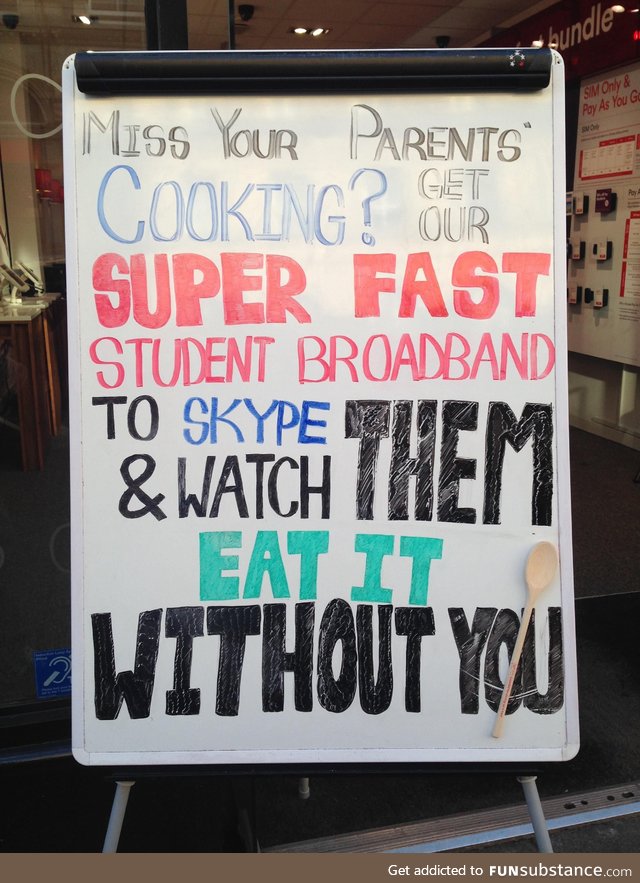 MISS YOUR PARENTS'
COOKING? GET
OUR
SUPER FAST
STUDENT BROADBAND
TO SKYPE THEM
& WATCH
EAT IT
WITHOUT YOU
bundle
SIM Only &
Pay As You Go
SIM Only
Get addicted to FUNsubstance.com